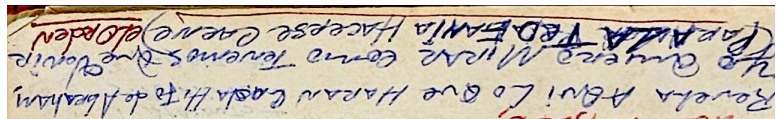 Revela AQui Lo Que HARAN CADA HiJo de Abraham,
Yo Quiero MiRAR Como Tenemos Que Venir
(PARA LA TEOFANIA HACERSE CARNE) el ORDEN